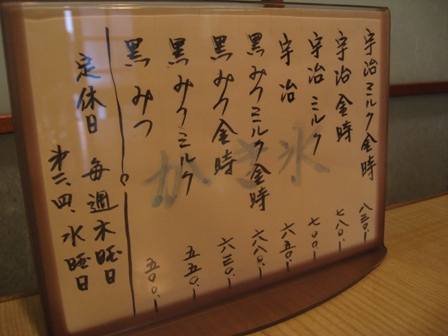 かき氷
宇治ミルク金時 八三〇.ー
宇治金時 七八〇.ー
宇治ミルク 七〇〇.ー
宇治 六五〇.ー
黒みつミルク金時 七八〇.ー
黒みつ金時 六三〇.ー
黒みつミルク 五五〇.ー
黒みつ 五〇〇.ー
定休日 毎週木曜日
第二、四、水曜日